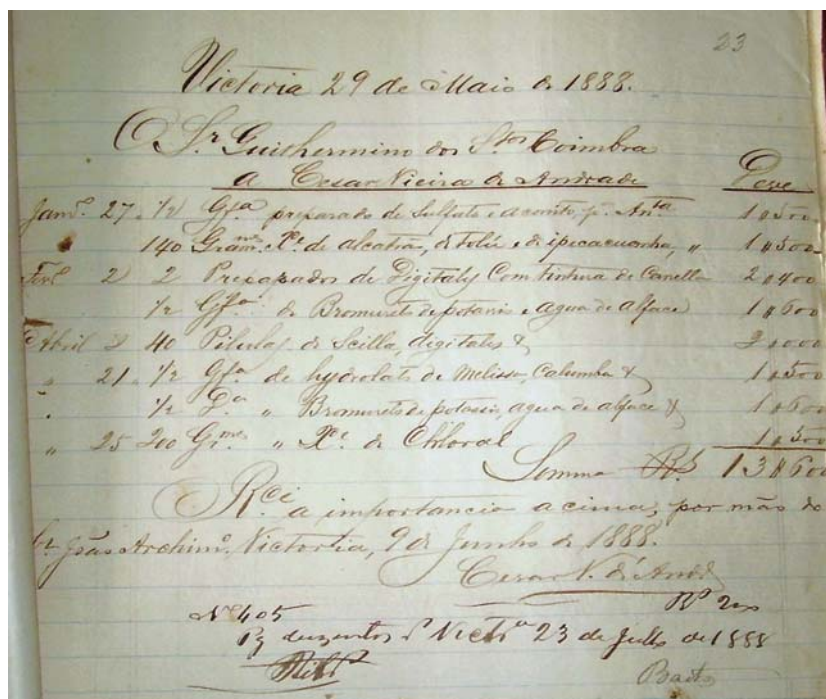 23
Victoria 29 de Maio de 1888.
O Sr. Guilhermino dos Stos Coimbra
a Cesar Vieira de Andrade Deve
Janro. 27 . 1/2 Gfa preparado de Sulfato e aconito, pa. Anta 1$500
140 Grames Xe. de alcatrão, de tolú e de ipecacuanha, " 1$500
2 2 Preparados de Digitalis Com tintura de Canella 2$400
1/2 Gfa. de Bromureto de potassio e agua de alface 1$600
Abril 40 Pilulas de Scilla, digitales & 2$000
" 21 . 1/2 Gfa. de hydrolato de Melissa, Calumba & 1$500
. 1/2 Da " Bromureto de potassio, agua de alface & 1$600
" 25 200 Grmes. " Xe. de Chloral 1$500
Somma Rs 13$600
Rci a importancia acima, por mão do
João Archimo. Victoria, 9 de Junho de 1888.
Cesar V. d'Andre
No 405 Rs 200
Pg duzentos rs Victra 23 de Julho de 1888